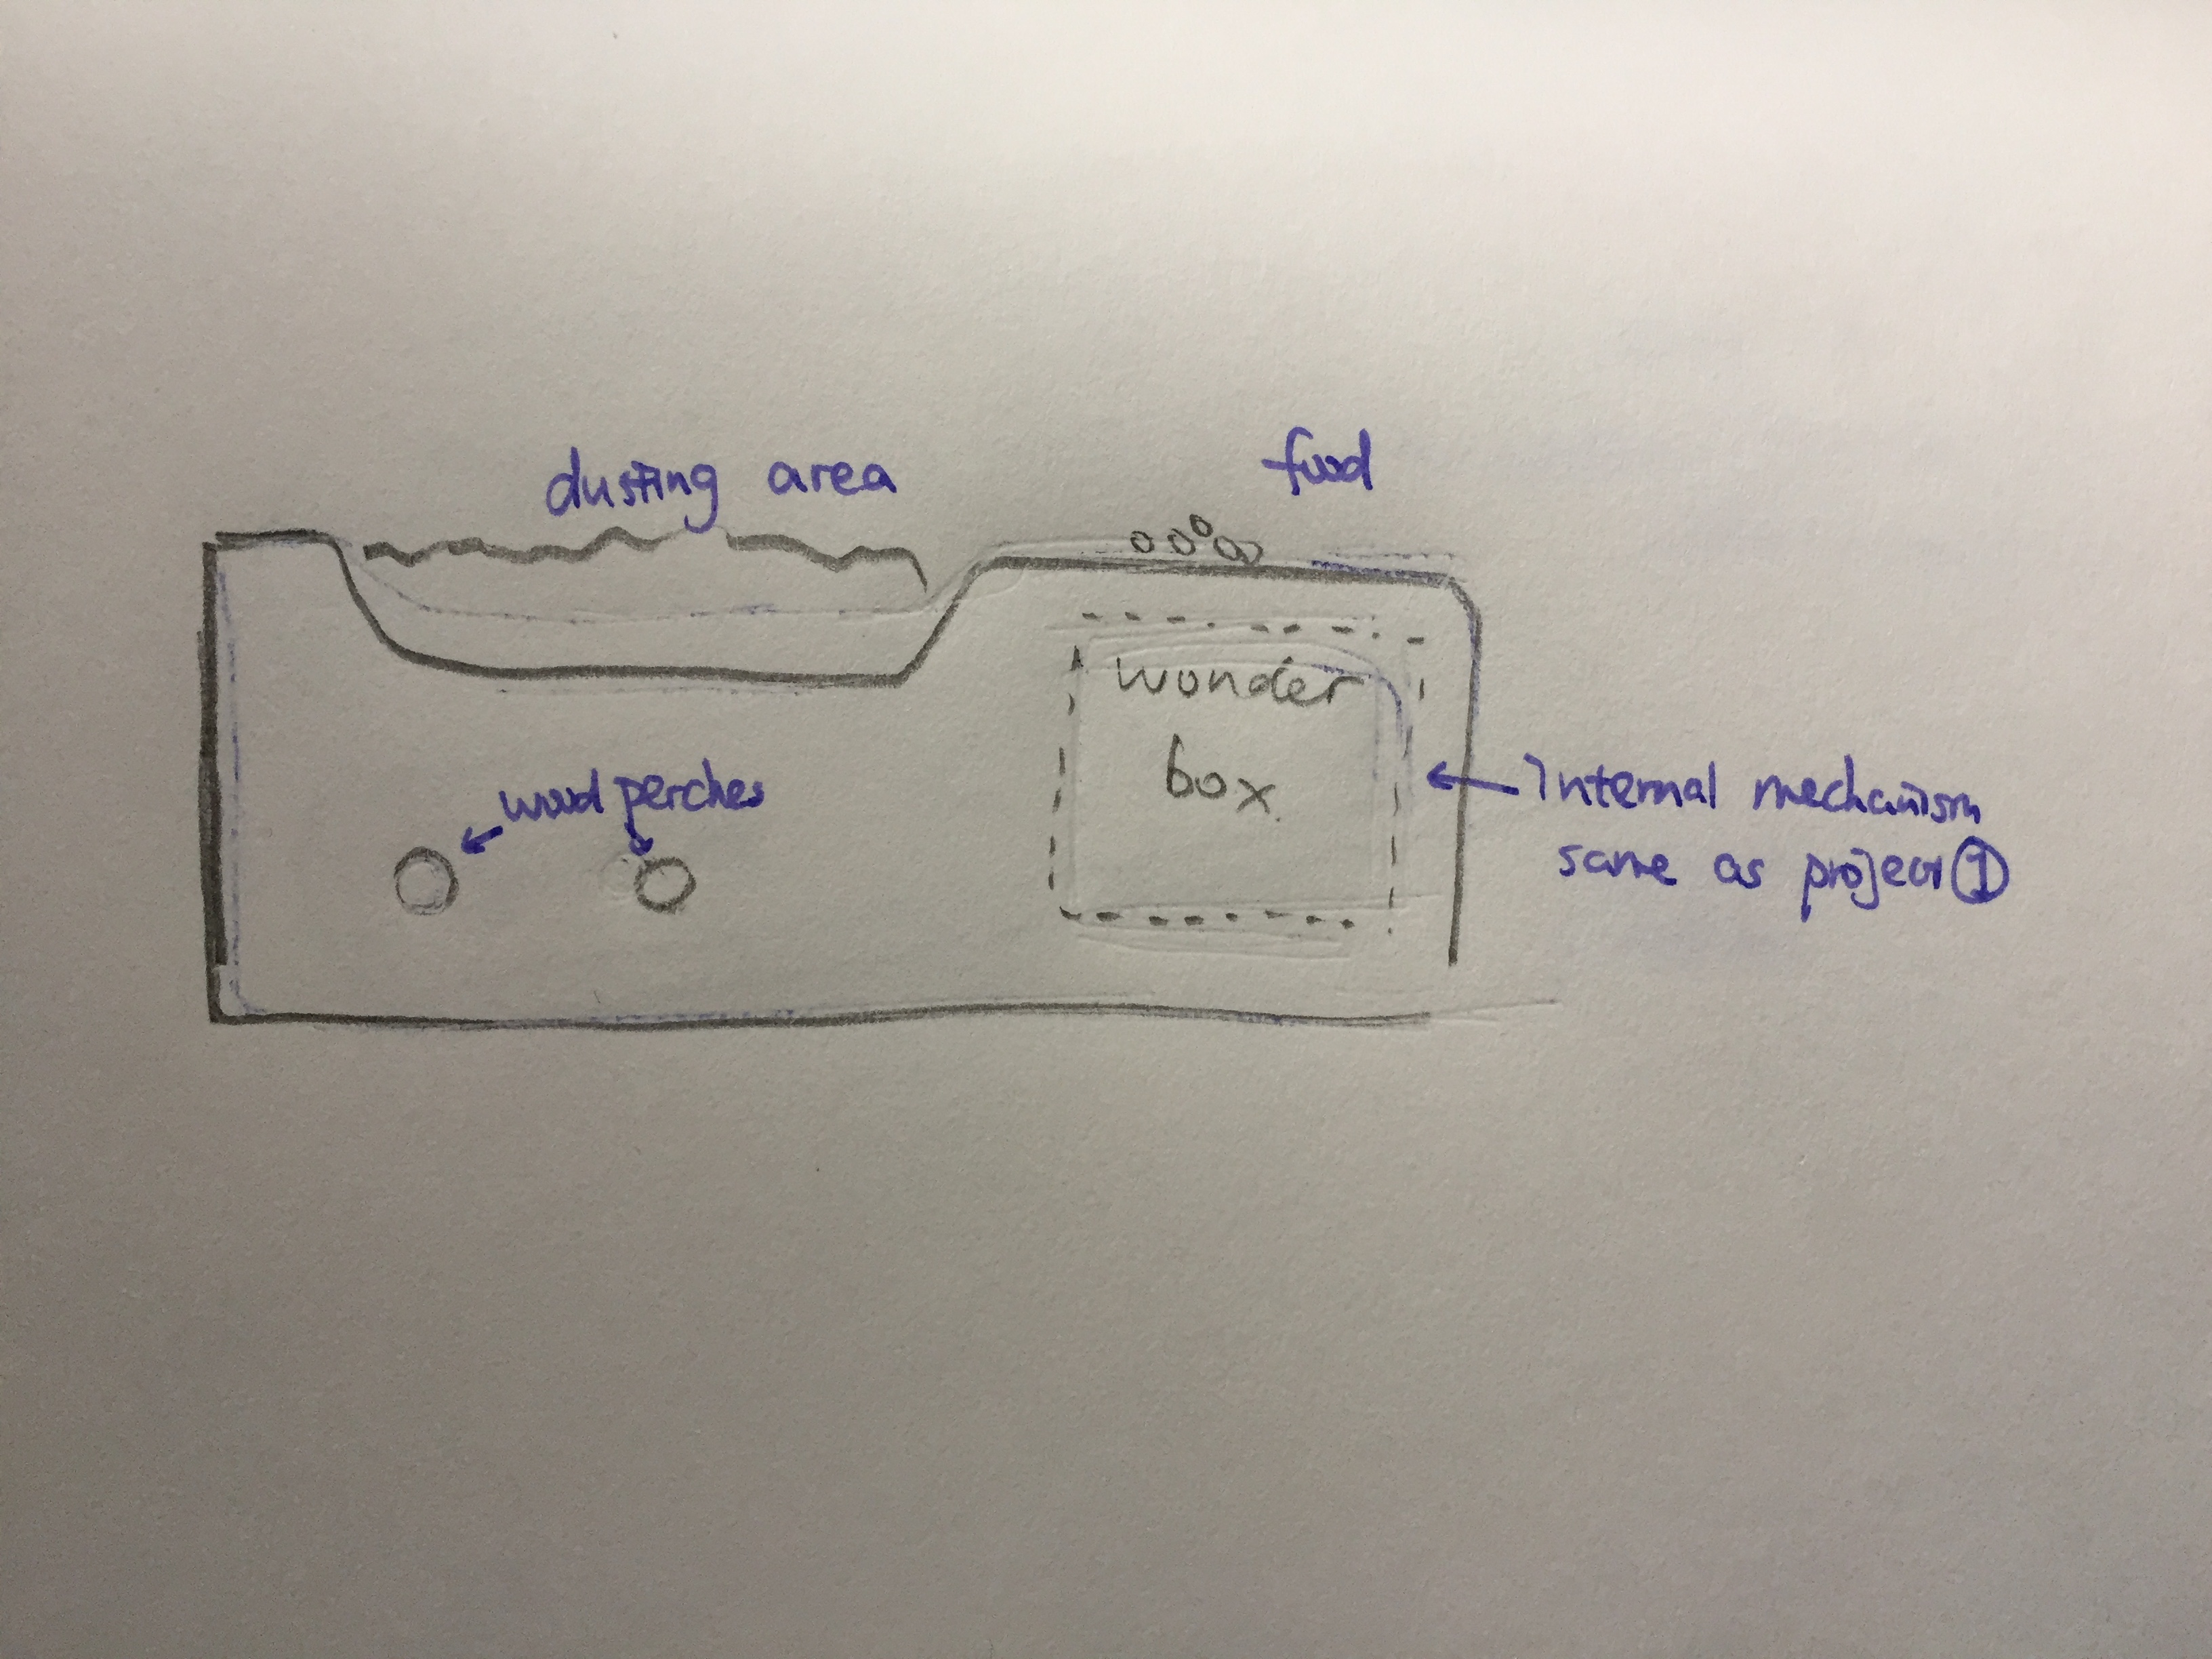 dusting area
food
wonder
box
wood perches
Internal mechanism
same as project ①